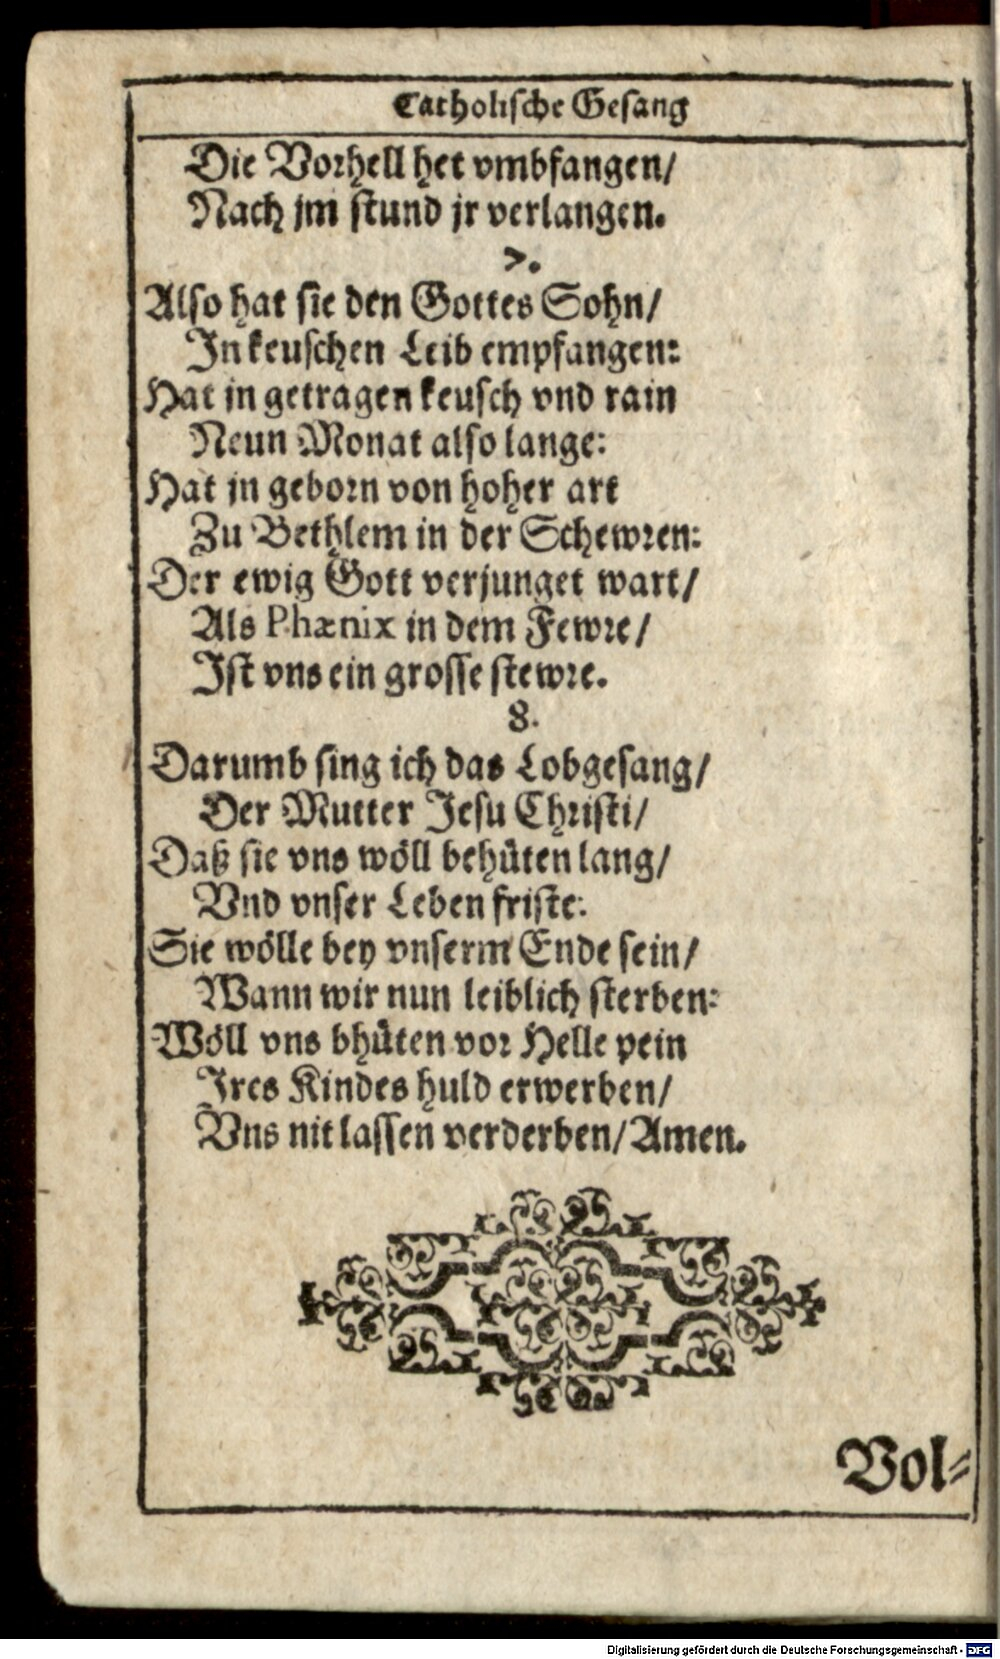 Catholische Gesang
Die Vorhell het vmbfangen/
Nach jm stund jr verlangen.
7.
Also hat sie den Gottes Sohn/
In keuschen Leib empfangen:
Hat jn getragen keusch vnd rain
Neun Monat also lange:
Hat jn geborn von hoher art
Zu Bethlem in der Schewren:
Der ewig Gott verjunget wart/
Als Phænix in dem Fewre/
Ist vns ein grosse stewre.
8.
Darumb sing ich das Lobgesang/
Der Mutter Jesu Christi/
Daß sie vns wöll behüten lang/
Vnd vnser Leben friste:
Sie wölle bey vnserm Ende sein/
Wann wir nun leiblich sterben:
Wöll vns bhüten vor Helle pein
Ires Kindes huld erwerben/
Vns nit lassen verderben/ Amen.
Vol-
Digitalisierung gefördert durch die Deutsche Forschungsgemeinschaft - DFG